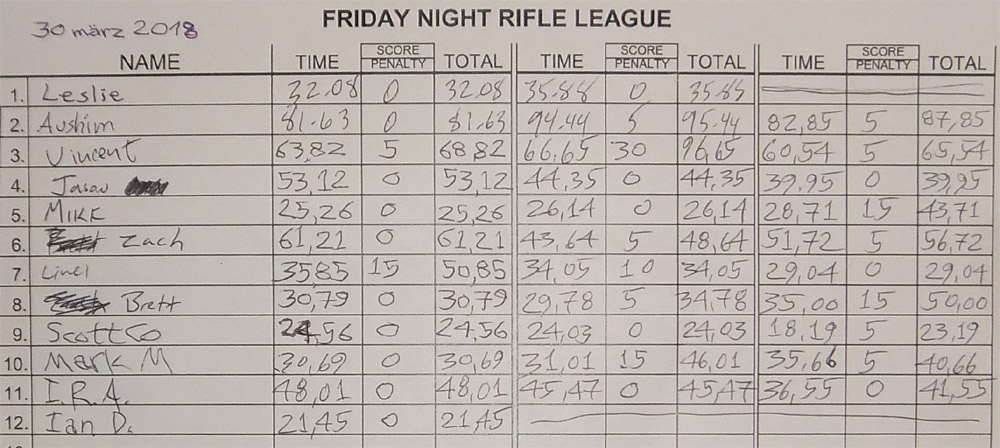 30 märz 2018
FRIDAY NIGHT RIFLE LEAGUE
NAME TIME SCORE PENALTY TOTAL TIME SCORE PENALTY TOTAL TIME SCORE PENALTY TOTAL
1. Leslie 32.08 0 32.08 35.88 0 35.88
2. Aushim 81.63 0 81.63 94.44 5 95.44 82,85 5 87,85
3. Vincent 63,82 5 68,82 66,65 30 96,65 60,54 5 65,54
4. Jason 53,12 0 53,12 44,35 0 44,35 39,95 0 39,95
5. MIKE 25,26 0 25,26 26,14 0 26,14 28,71 15 43,71
6. Zach 61,21 0 61,21 43,64 5 48,64 51,72 5 56,72
7. 35,85 15 50,85 34,05 10 34,05 29,04 0 29,04
8. Brett 30,79 0 30,79 29,78 5 34,78 35,00 15 50,00
9. ScottCo 24,56 0 24,56 24,03 0 24,03 18,19 5 23,19
10. Mark M 30,69 0 30,69 31,01 15 46,01 35,66 5 40,66
11. I.R.A. 48,01 0 48,01 45,47 0 45,47 36,55 0 41,55
12. Ian D. 21,45 0 21,45